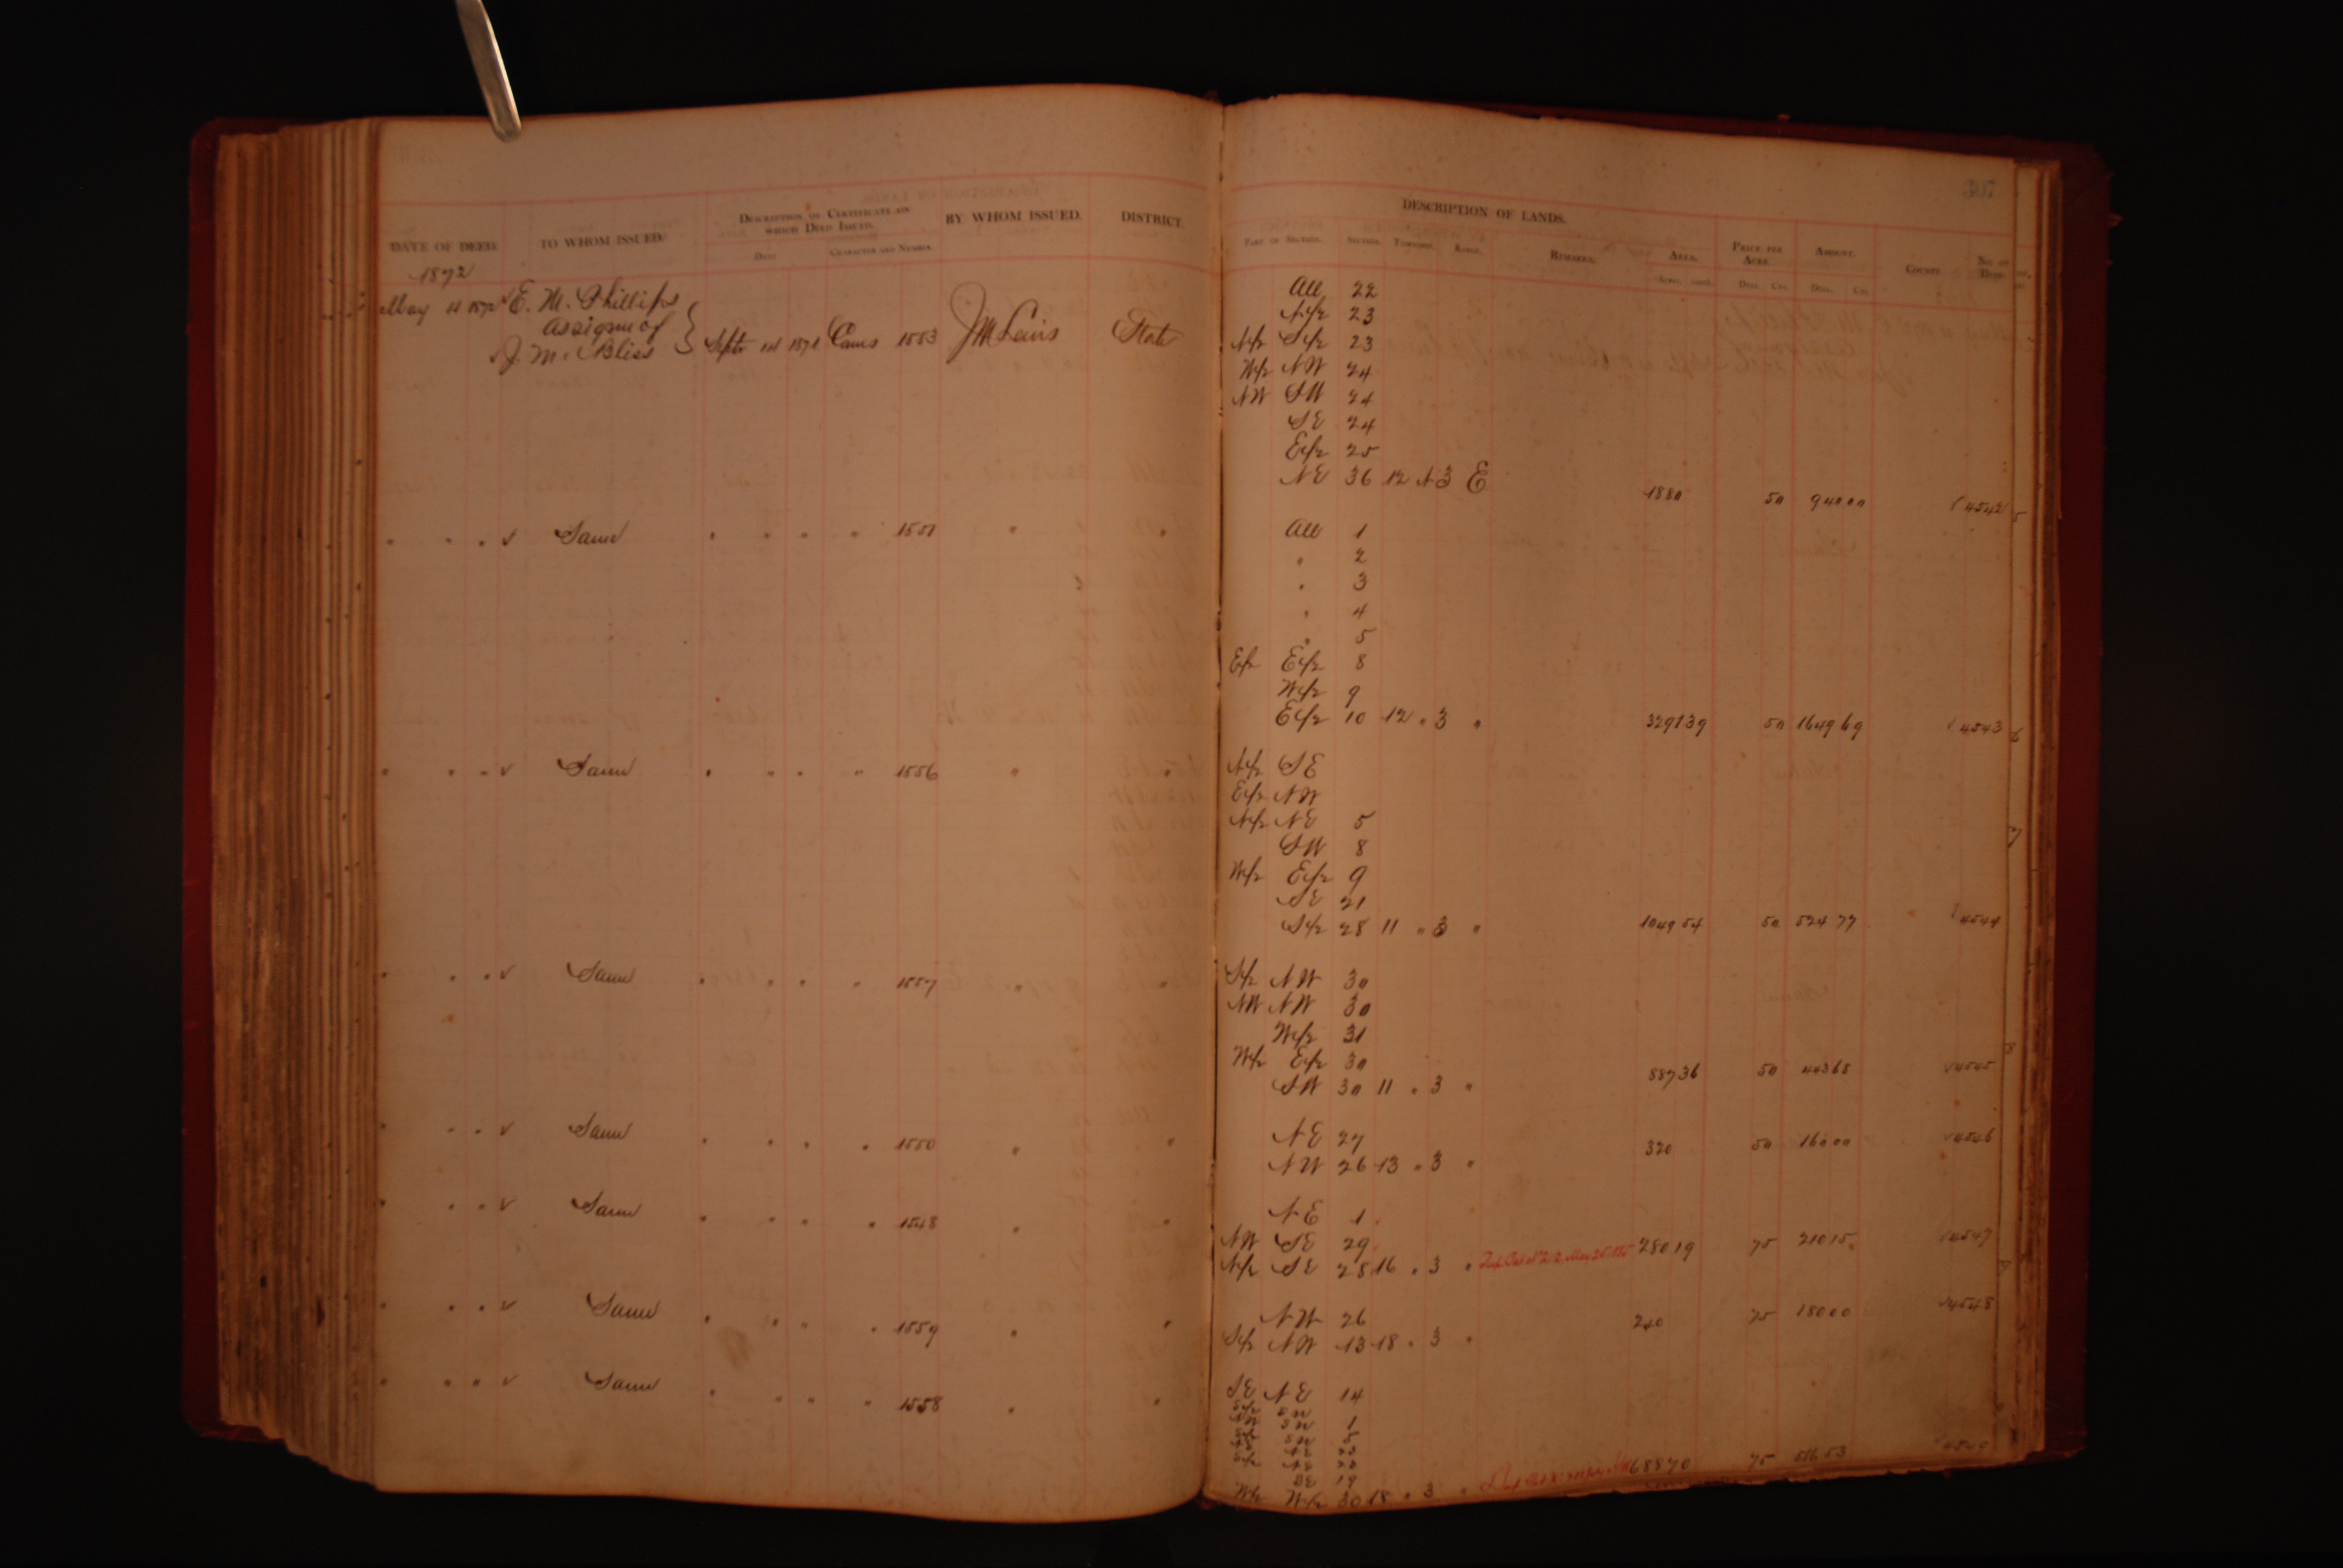 307
DESCRIPTION OF LANDS.
DATE OF DEED. TO WHOM ISSUED. DESCRIPTION OF CERTIFICATE ON WHICH DEED ISSUED. BY WHOM ISSUED. DISTRICT. PART OF SECTION. SECTION. TOWNSHIP. RANGE. REMARKS. AREA. PRICE PER ACRE. AMOUNT. COUNTY. NO. OF DEED.
DATE CHARACTER AND NUMBER. DOLL. CTS. DOLL. CTS.
1872
May 14 1872 E. M. Phillips
assignee of
J. M. Bliss Sept 14 1871 Cams 1553 J M Lewis State
All 22
N½ 23
N½ S½ 23
W½ NW 24
NW SW 24
SE 24
E½ 25
NE 36 12 N 3 E 1880 50 940 00 4542
" " " Same " " " " 1551 " " All 1
" 2
" 3
" 4
" 5
E½ E½ 8
W½ 9
E½ 10 12 " 3 " 3291 39 50 1649 69 4543
" " " Same " " " " 1556 " " N½ SE
E½ NW
N½ NE 5
SW 8
W½ E½ 9
SE 21
S½ 28 11 " 3 " 1049 54 50 524 77 4544
" " " Same " " " " 1557 " " S½ NW 30
NW NW 30
W½ 31
W½ E½ 30
SW 30 11 " 3 " 887 36 50 443 68 4545
" " " Same " " " " 1550 " " NE 27
NW 26 13 " 3 " 320 50 160 00 4546
" " " Same " " " " 1548 " " NE 1
NW SE 29
N½ SE 28 16 " 3 " 280 19 75 210 15 4547
" " " Same " " " " 1559 " " NW 26
S½ NW 13 18 " 3 " 240 75 180 00 4548
" " " Same " " " " 1558 " " SE NE 14
SW 1
SE 19
W½ W½ 30 18 " 3 " 688 70 75 516 53 4549